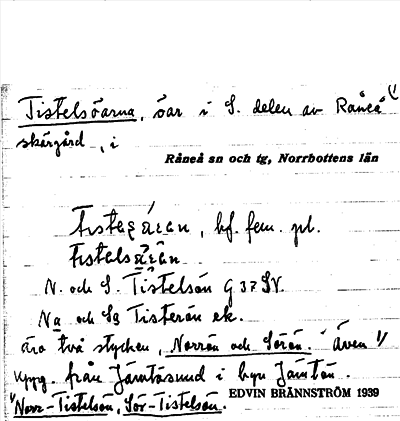 Tistelsöarna, öar i S. delen av Råneå
skärgård, i
Råneå sn och tg, Norrbottens län
bf. fem. pl.
N. och S. Tistelsön G 37 SV.
Na och Sa Tisterön ek.
äro två stycken, Norrön och Sörön. Även 1/
uppg. från Jämtösund i byn Jämtön.
1/ Norr-Tistelsön, Sör-Tistelsön.
EDVIN BRÄNNSTRÖM 1939